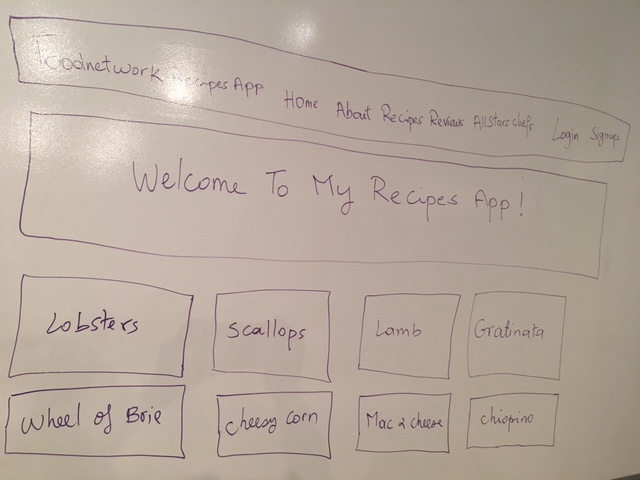 Foodnetwork Recipes App Home About Recipes Reviews Allstars chefs Login Signup
Welcome To My Recipes App!
Lobsters Scallops Lamb Gratinata
Wheel of Brie Cheesy Corn Mac & cheese Chiopino